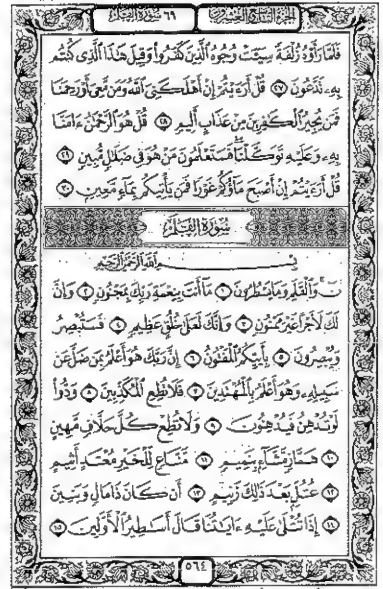 الجزء التاسع والعشرون ٦٩ سورة القلم
فَلَمَّا رَأَوْهُ زُلْفَةً سِيٓـَٔتْ وُجُوهُ ٱلَّذِينَ كَفَرُوا۟ وَقِيلَ هَٰذَا ٱلَّذِى كُنتُم
بِهِۦ تَدَّعُونَ ٢٧ قُلْ أَرَءَيْتُمْ إِنْ أَهْلَكَنِىَ ٱللَّهُ وَمَن مَّعِىَ أَوْ رَحِمَنَا
فَمَن يُجِيرُ ٱلْكَٰفِرِينَ مِنْ عَذَابٍ أَلِيمٍ ٢٨ قُلْ هُوَ ٱلرَّحْمَٰنُ ءَامَنَّا
بِهِۦ وَعَلَيْهِ تَوَكَّلْنَا فَسَتَعْلَمُونَ مَنْ هُوَ فِى ضَلَٰلٍ مُّبِينٍ ٢٩
قُلْ أَرَءَيْتُمْ إِنْ أَصْبَحَ مَآؤُكُمْ غَوْرًا فَمَن يَأْتِيكُم بِمَآءٍ مَّعِينٍ ٣٠
سُورَةُ القَلَم
بِسْمِ ٱللَّهِ ٱلرَّحْمَٰنِ ٱلرَّحِيمِ
نٓ وَٱلْقَلَمِ وَمَا يَسْطُرُونَ ١ مَآ أَنتَ بِنِعْمَةِ رَبِّكَ بِمَجْنُونٍ ٢ وَإِنَّ
لَكَ لَأَجْرًا غَيْرَ مَمْنُونٍ ٣ وَإِنَّكَ لَعَلَىٰ خُلُقٍ عَظِيمٍ ٤ فَسَتُبْصِرُ
وَيُبْصِرُونَ ٥ بِأَييِّكُمُ ٱلْمَفْتُونُ ٦ إِنَّ رَبَّكَ هُوَ أَعْلَمُ بِمَن ضَلَّ عَن
سَبِيلِهِۦ وَهُوَ أَعْلَمُ بِٱلْمُهْتَدِينَ ٧ فَلَا تُطِعِ ٱلْمُكَذِّبِينَ ٨ وَدُّوا۟
لَوْ تُدْهِنُ فَيُدْهِنُونَ ٩ وَلَا تُطِعْ كُلَّ حَلَّافٍ مَّهِينٍ
١٠ هَمَّازٍ مَّشَّآءٍۭ بِنَمِيمٍ ١١ مَّنَّاعٍ لِّلْخَيْرِ مُعْتَدٍ أَثِيمٍ
١٢ عُتُلٍّۭ بَعْدَ ذَٰلِكَ زَنِيمٍ ١٣ أَن كَانَ ذَا مَالٍ وَبَنِينَ
١٤ إِذَا تُتْلَىٰ عَلَيْهِ ءَايَٰتُنَا قَالَ أَسَٰطِيرُ ٱلْأَوَّلِينَ ١٥
٥٦٤